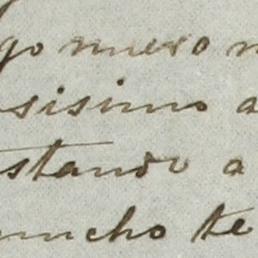 go nuevo n
sisimo a
stando a
mucho te